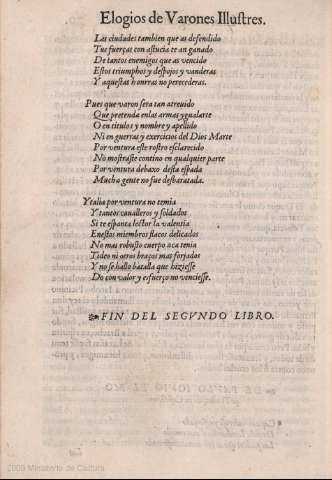 Elogios de Varones Illustres.
Las ciudades tambien que as defendido
Tus fuerças con astucia te an ganado
De tantos enemigos que as vencido
Estos triumphos y despojos y vanderas
Y aquestas honrras no perecederas.
Pues que varon sera tan atreuido
Que pretenda en las armas ygualarte
O en titulos y nombre y apellido
Ni en guerras y exercicios del Dios Marte
Por ventura este rostro esclarecido
No mostraste contino en qualquier parte
Por ventura debaxo desta espada
Mucha gente no fue desbaratada.
Ytalia por ventura no temia
Y tantos caualleros y soldados
Si te espanta lector la valentia
En estos miembros flacos delicados
No mas robusto cuerpo aca tenia
Tideo ni otros braços mas forjados
Y no se hallo batalla que hiziesse
Do con valor y esfuerço no venciesse.
FIN DEL SEGVNDO LIBRO.
2009 Ministerio de Cultura